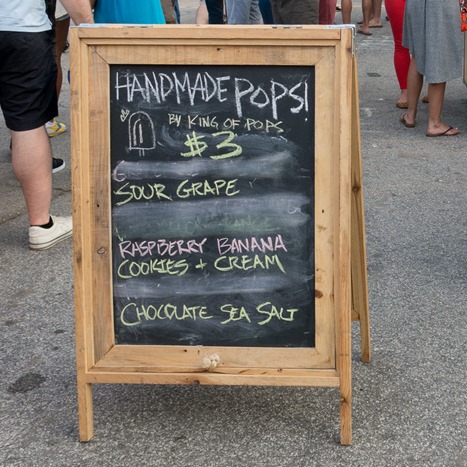 HANDMADE POPS!
BY KING OF POPS
$3
SOUR GRAPE
RASPBERRY BANANA
COOKIES + CREAM
CHOCOLATE SEA SALT